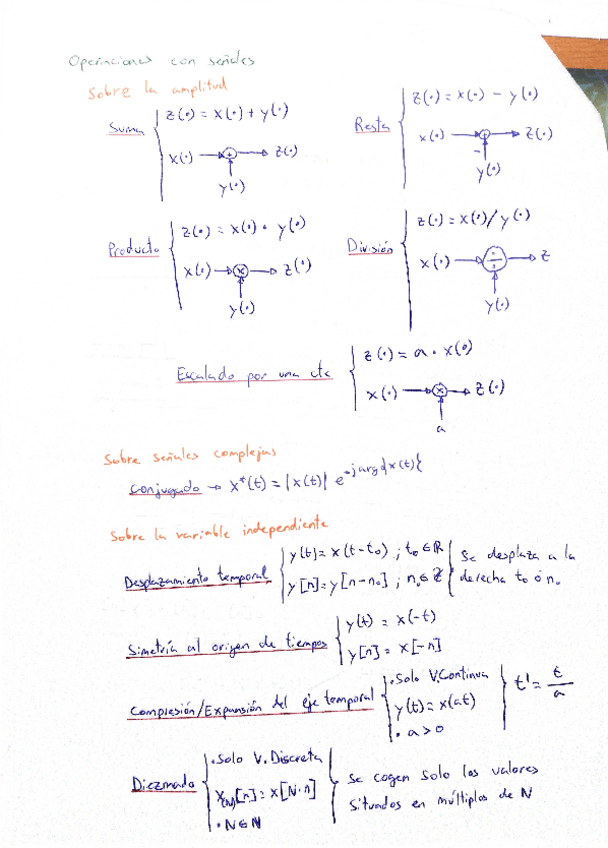 Operaciones con señales
Sobre la amplitud
Suma
z(·) = x(·) + y(·)
x(·) → + → z(·)
y(·)
Resta
z(·) = x(·) - y(·)
x(·) → + → z(·)
-
y(·)
Producto
z(·) = x(·) · y(·)
x(·) → x → z(·)
y(·)
División
z(·) = x(·)/y(·)
x(·) → ÷ → z
y(·)
Escalado por una cte
z(·) = a · x(·)
x(·) → x → z(·)
a
Sobre señales complejas
Conjugado → x*(t) = |x(t)| e^-j arg{x(t)}
Sobre la variable independiente
Desplazamiento temporal
y(t) = x(t-t₀) ; t₀ ∈ ℝ
y[n] = y[n-n₀] ; n₀ ∈ ℤ
Se desplaza a la
derecha t₀ ó n₀
Simetría al origen de tiempos
y(t) = x(-t)
y[n] = x[-n]
Compresión/Expansión del eje temporal
· Solo V.Continua
y(t) = x(at)
· a > 0
t' = t/a
Diezmado
· Solo V. Discreta
x(N)[n] = x[N·n]
· N ∈ ℕ
Se cogen solo los valores
situados en múltiplos de N